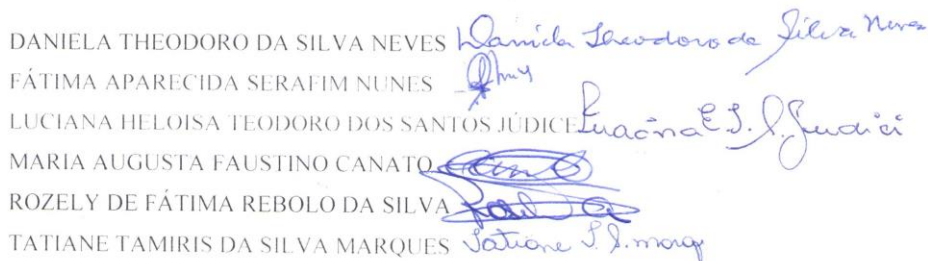 DANIELA THEODORO DA SILVA NEVES Daniela Theodoro da Silva Neves
FÁTIMA APARECIDA SERAFIM NUNES
LUCIANA HELOISA TEODORO DOS SANTOS JÚDICE
MARIA AUGUSTA FAUSTINO CANATO
ROZELY DE FÁTIMA REBOLO DA SILVA
TATIANE TAMIRIS DA SILVA MARQUES Tatiane